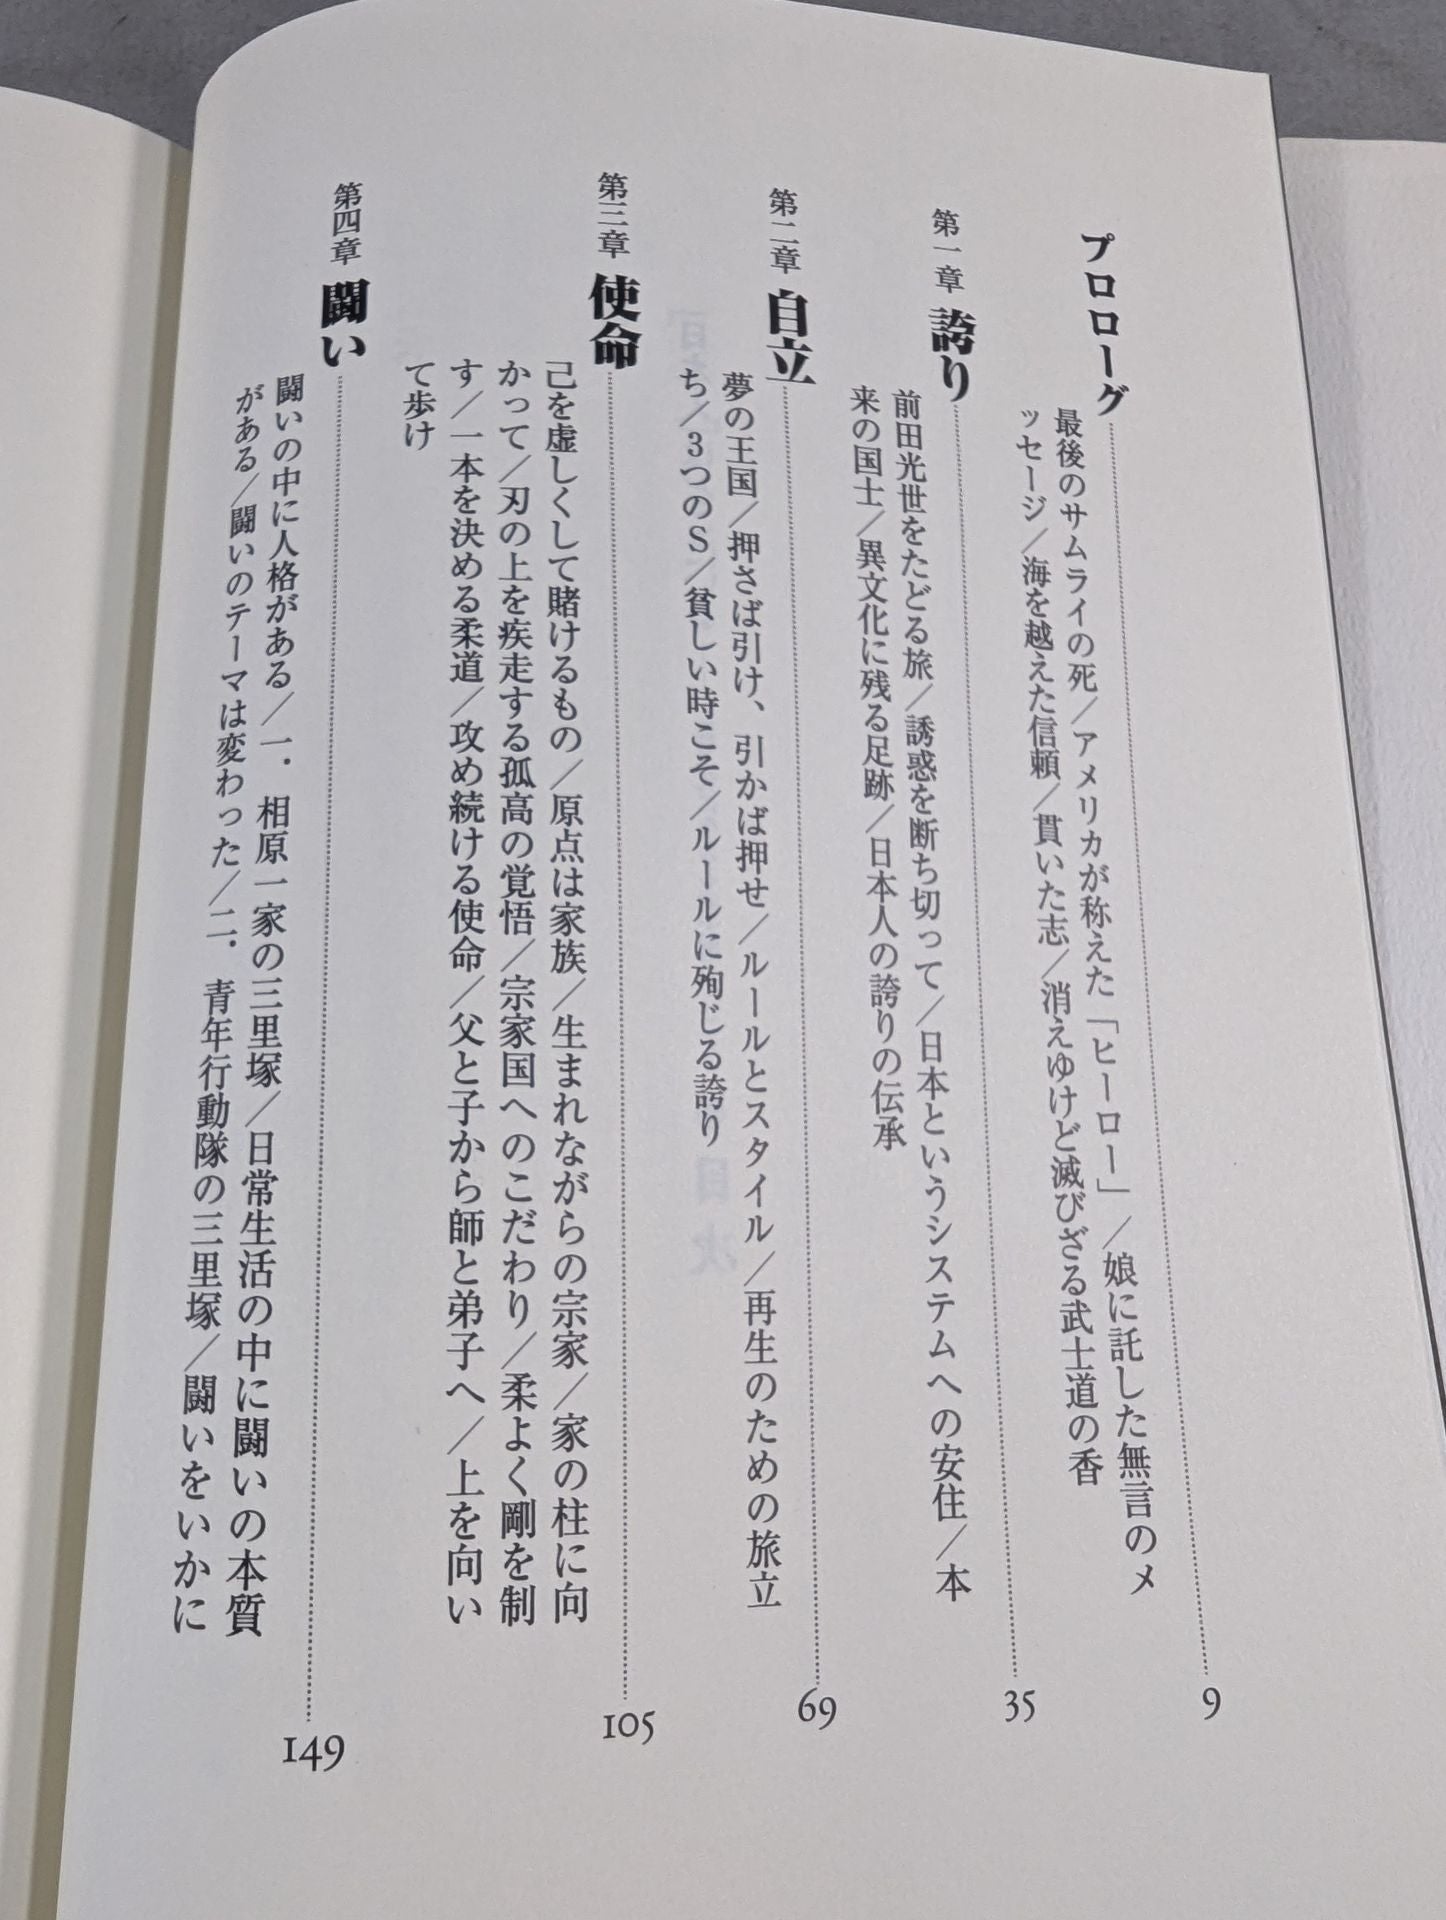 プロローグ 9
最後のサムライの死／アメリカが称えた「ヒーロー」／娘に託した無言のメ
ッセージ／海を越えた信頼／貫いた志／消えゆけど滅びざる武士道の香
第一章 誇り 35
前田光世をたどる旅／誘惑を断ち切って／日本というシステムへの安住／本
来の国士／異文化に残る足跡／日本人の誇りの伝承
第二章 自立 69
夢の王国／押さば引け、引かば押せ／ルールとスタイル／再生のための旅立
ち／3つのS／貧しい時こそ／ルールに殉じる誇り
第三章 使命 105
己を虚しくして賭けるもの／原点は家族／生まれながらの宗家／家の柱に向
かって／刃の上を疾走する孤高の覚悟／宗家国へのこだわり／柔よく剛を制
す／一本を決める柔道／攻め続ける使命／父と子から師と弟子へ／上を向い
て歩け
第四章 闘い 149
闘いの中に人格がある／一．相原一家の三里塚／日常生活の中に闘いの本質
がある／闘いのテーマは変わった／二．青年行動隊の三里塚／闘いをいかに
目次